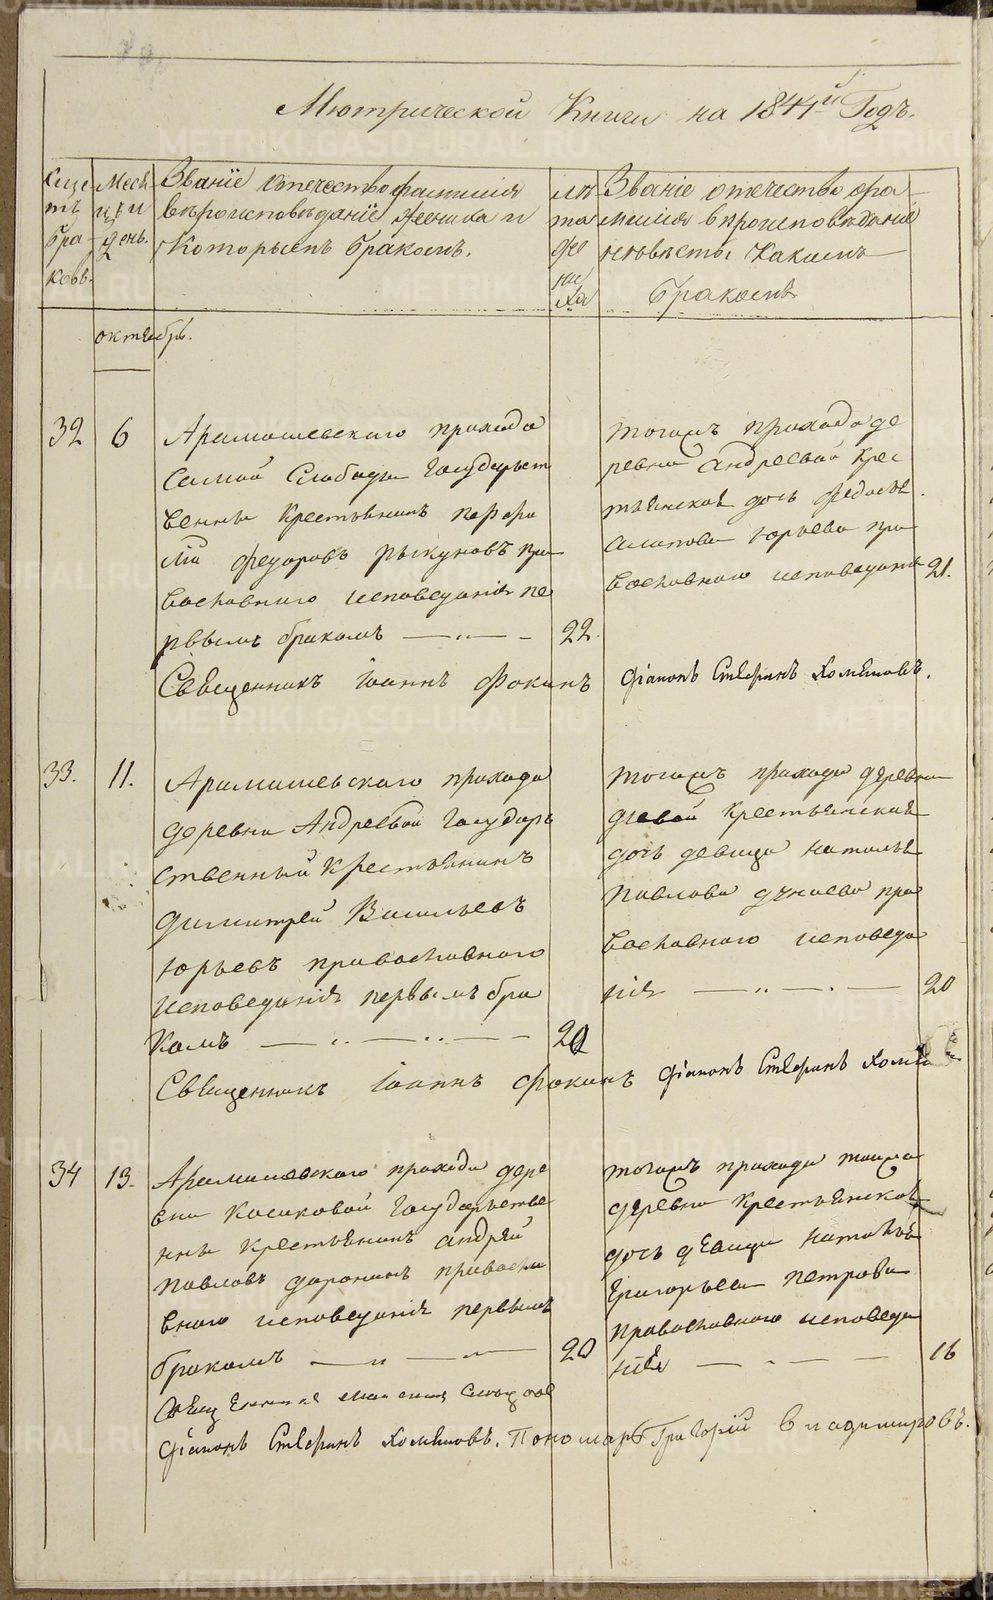 Мютрической Книги на 1844й Годъ.
Счетъ браковъ.
Месяцъ и день.
Званіе отечество фамилия
вѣроисповѣданіе жениха и
которымъ бракомъ.
лѣта жениха
Званіе отечество фа
милия вѣроисповѣданіе
невѣсты какимъ
бракомъ
октябрь.
32
6
Арамашевскаго прихода
самой Слободы Государст
венны крестьянинъ порфи
лій федоровъ рыкуновъ пра
вославнаго исповеданія пе
рвымъ бракомъ
22.
тогожъ прихода де
ревни андреевой крес
тьянская дочь федосья
юрьева пра
вославнаго исповедания
21.
Священникъ Іоаннъ Фокинъ
діаконъ Стефанъ Хомяковъ.
33.
11.
Арамашевскаго прихода
деревни Андреевой Государ
ственный Крестьянинъ
Димитрей Васильевъ
Юрьевъ православнаго
исповеданія первымъ бра
комъ
20
тогожъ прихода деревни
крестьянская
дочь девица наталья
Павлова дунаева пра
вославнаго исповеда
нія
20
Священникъ Іоаннъ Фокинъ
діаконъ Стефанъ
34
13.
Арамашевскаго прихода дере
вни Косиковой Государстве
нны крестьянинъ андрей
Павловъ доронинъ правосла
внаго исповеданія первымъ
бракомъ
20
тогожъ прихода тоижа
деревни крестьянская
дочь девица наталья
Григорьева петрова
православнаго исповеда
нія
16
Священникъ
діаконъ Стефанъ Хомяковъ. Пономарь Григорій Владимировъ.